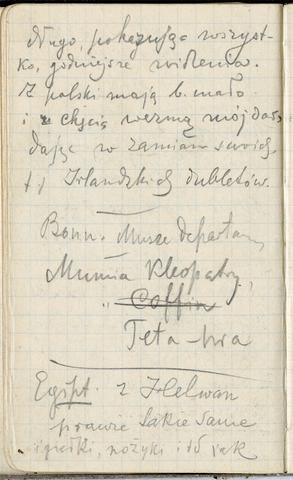 długo, pokazując wszyst-
ko, godniejsze widzenia.
Z polski mają b. mało
i z chęcią wezmą mój dar,
dając w zamian swoich
t.j. Irlandzkich dubletów.
Bonn. Musze departam,
Mumia Kleopatry,
" Coffin
Teta-hra
Egipt. z Helwan
prawie takie same
igiełki, nożyki i td jak